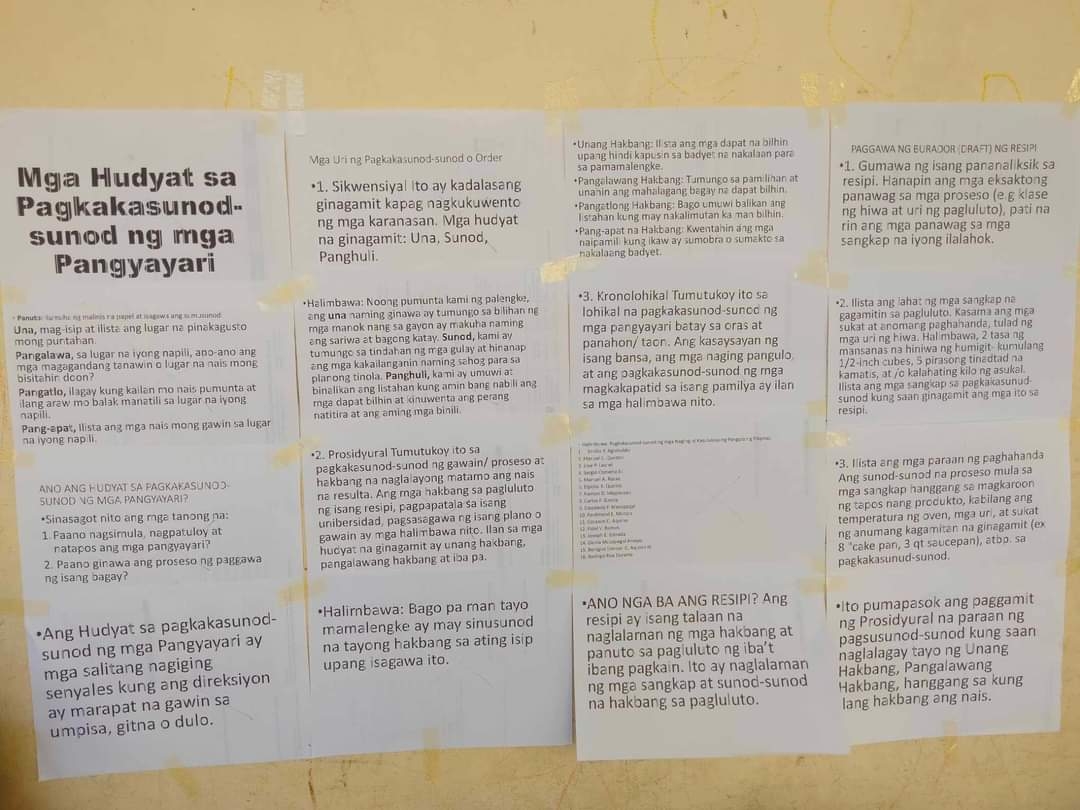 Mga Hudyat sa
Pagkakasunod-
sunod ng mga
Pangyayari
• Panuto: Kumuha ng malinis na papel at isagawa ang sumusunod.
Una, mag-isip at ilista ang lugar na pinakagusto
mong puntahan.
Pangalawa, sa lugar na iyong napili, ano-ano ang
mga magagandang tanawin o lugar na nais mong
bisitahin doon?
Pangatlo, ilagay kung kailan mo nais pumunta at
ilang araw mo balak manatili sa lugar na iyong
napili.
Pang-apat, Ilista ang mga nais mong gawin sa lugar
na iyong napili.
ANO ANG HUDYAT SA PAGKAKASUNOD-
SUNOD NG MGA PANGYAYARI?
•Sinasagot nito ang mga tanong na:
1. Paano nagsimula, nagpatuloy at
natapos ang mga pangyayari?
2. Paano ginawa ang proseso ng paggawa
ng isang bagay?
•Ang Hudyat sa pagkakasunod-
sunod ng mga Pangyayari ay
mga salitang nagiging
senyales kung ang direksiyon
ay marapat na gawin sa
umpisa, gitna o dulo.
Mga Uri ng Pagkakasunod-sunod o Order
•1. Sikwensiyal Ito ay kadalasang
ginagamit kapag nagkukuwento
ng mga karanasan. Mga hudyat
na ginagamit: Una, Sunod,
Panghuli.
•Halimbawa: Noong pumunta kami ng palengke,
ang una naming ginawa ay tumungo sa bilihan ng
mga manok nang sa gayon ay makuha naming
ang sariwa at bagong katay. Sunod, kami ay
tumungo sa tindahan ng mga gulay at hinanap
ang mga kakailanganin naming sahog para sa
planong tinola. Panghuli, kami ay umuwi at
binalikan ang listahan kung amin bang nabili ang
mga dapat bilhin at kinuwenta ang perang
natitira at ang aming mga binili.
•2. Prosidyural Tumutukoy ito sa
pagkakasunod-sunod ng gawain/ proseso at
hakbang na naglalayong matamo ang nais
na resulta. Ang mga hakbang sa pagluluto
ng isang resipi, pagpapatala sa isang
unibersidad, pagsasagawa ng isang plano o
gawain ay mga halimbawa nito. Ilan sa mga
hudyat na ginagamit ay unang hakbang,
pangalawang hakbang at iba pa.
•Halimbawa: Bago pa man tayo
mamalengke ay may sinusunod
na tayong hakbang sa ating isip
upang isagawa ito.
•Unang Hakbang: Ilista ang mga dapat na bilhin
upang hindi kapusin sa badyet na nakalaan para
sa pamamalengke.
•Pangalawang Hakbang: Tumungo sa pamilihan at
unahin ang mahalagang bagay na dapat bilhin.
•Pangatlong Hakbang: Bago umuwi balikan ang
listahan kung may nakalimutan ka man bilhin.
•Pang-apat na Hakbang: Kwentahin ang mga
naipamili kung ikaw ay sumobra o sumakto sa
nakalaang badyet.
•3. Kronolohikal Tumutukoy ito sa
lohikal na pagkakasunod-sunod ng
mga pangyayari batay sa oras at
panahon/ taon. Ang kasaysayan ng
isang bansa, ang mga naging pangulo,
at ang pagkakasunod-sunod ng mga
magkakapatid sa isang pamilya ay ilan
sa mga halimbawa nito.
• Halimbawa: Pagkakasunod-sunod ng mga Naging at Kasalukuyang Pangulo ng Pilipinas
1. Emilio F. Aguinaldo
2. Manuel L. Quezon
3. Jose P. Laurel
4. Sergio Osmeña Sr.
5. Manuel A. Roxas
6. Elpidio R. Quirino
7. Ramon D. Magsaysay
8. Carlos P. Garcia
9. Diosdado P. Macapagal
10. Ferdinand E. Marcos
11. Corazon C. Aquino
12. Fidel V. Ramos
13. Joseph E. Estrada
14. Gloria Macapagal Arroyo
15. Benigno Simeon C. Aquino III
16. Rodrigo Roa Duterte
•ANO NGA BA ANG RESIPI? Ang
resipi ay isang talaan na
naglalaman ng mga hakbang at
panuto sa pagluluto ng iba't
ibang pagkain. Ito ay naglalaman
ng mga sangkap at sunod-sunod
na hakbang sa pagluluto.
PAGGAWA NG BURADOR (DRAFT) NG RESIPI
•1. Gumawa ng isang pananaliksik sa
resipi. Hanapin ang mga eksaktong
panawag sa mga proseso (e.g klase
ng hiwa at uri ng pagluluto), pati na
rin ang mga panawag sa mga
sangkap na iyong ilalahok.
•2. Ilista ang lahat ng mga sangkap na
gagamitin sa pagluluto. Kasama ang mga
sukat at anomang paghahanda, tulad ng
mga uri ng hiwa. Halimbawa, 2 tasa ng
mansanas na hiniwa ng humigit- kumulang
1/2-inch cubes, 5 pirasong tinadtad na
kamatis, at /o kalahating kilo ng asukal.
Ilista ang mga sangkap sa pagkakasunud-
sunod kung saan ginagamit ang mga ito sa
resipi.
•3. Ilista ang mga paraan ng paghahanda
Ang sunod-sunod na proseso mula sa
mga sangkap hanggang sa magkaroon
ng tapos nang produkto, kabilang ang
temperatura ng oven, mga uri, at sukat
ng anumang kagamitan na ginagamit (ex
8 "cake pan, 3 qt saucepan), atbp. sa
pagkakasunud-sunod.
•Ito pumapasok ang paggamit
ng Prosidyural na paraan ng
pagsusunod-sunod kung saan
naglalagay tayo ng Unang
Hakbang, Pangalawang
Hakbang, hanggang sa kung
lang hakbang ang nais.